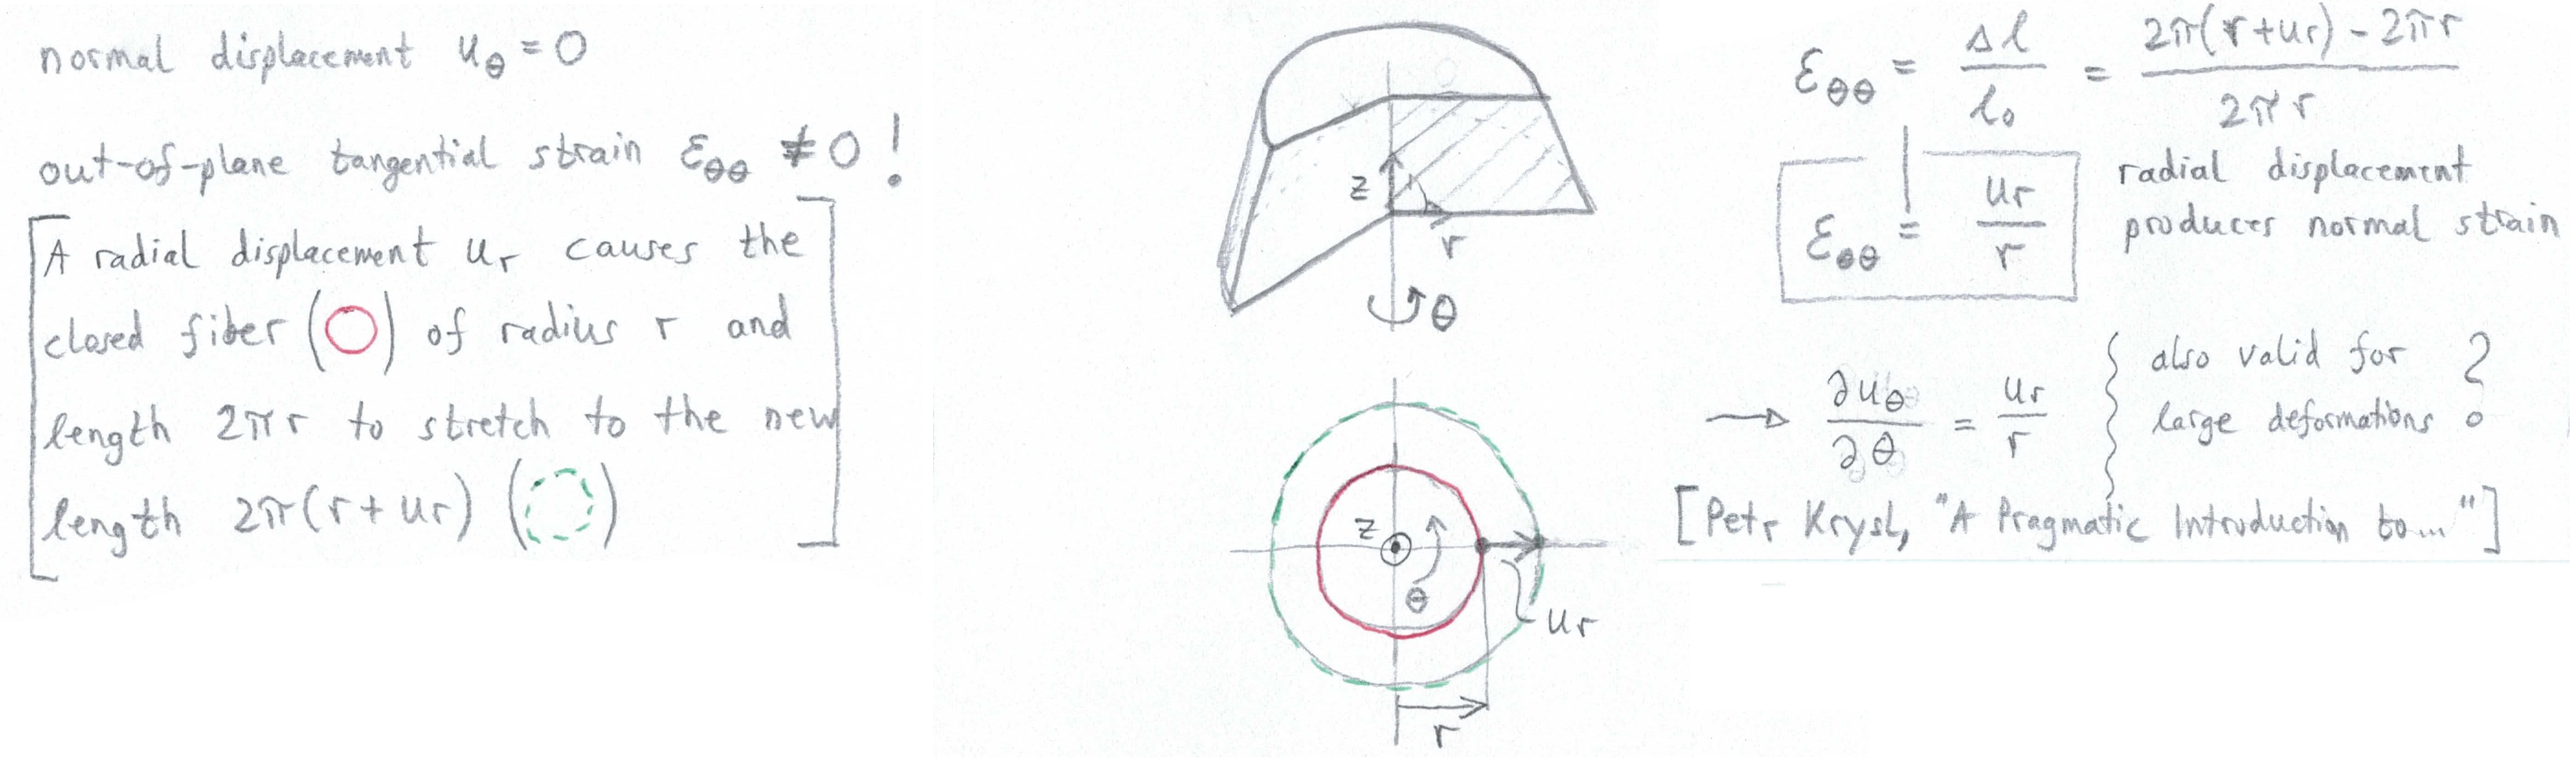 normal displacement u_θ = 0
out-of-plane tangential strain ε_θθ ≠ 0 !
A radial displacement u_r causes the
closed fiber (○) of radius r and
length 2πr to stretch to the new
length 2π(r + u_r) (◌)
z
r
θ
z
θ
u_r
r
ε_θθ = Δl / l_0 = (2π(r+u_r) - 2πr) / (2πr)
ε_θθ = u_r / r
radial displacement
produces normal strain
→ ∂u_θ / ∂θ = u_r / r
also valid for
large deformations ?
[Petr Krysl, "A Pragmatic Introduction to..."]